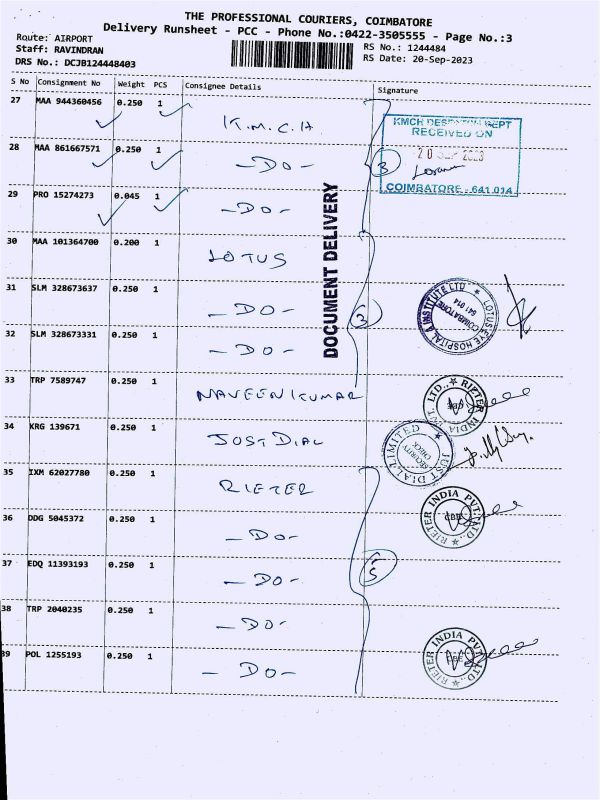 THE PROFESSIONAL COURIERS, COIMBATORE
Delivery Runsheet - PCC - Phone No.:0422-3505555 - Page No.:3
Route: AIRPORT
RS No.: 1244484
Staff: RAVINDRAN
RS Date: 20-Sep-2023
DRS No.: DCJB124448403
S No Consignment No Weight PCS Consignee Details Signature
27 MAA 944360456 0.250 1 K.M.C.H
KMCH DESPATCH DEPT
RECEIVED ON
28 MAA 861667571 0.250 1 -DO- 3
20 SEP 2023
COIMBATORE - 641 014
29 PRO 15274273 0.045 1 -DO-
DOCUMENT DELIVERY
30 MAA 101364700 0.200 1 LOTUS
31 SLM 328673637 0.250 1 -DO- 3
LOTUS EYE HOSPITAL & INSTITUTE LTD
COIMBATORE 641 014
32 SLM 328673331 0.250 1 -DO-
33 TRP 7589747 0.250 1 NAVEEN KUMAR
RIETER INDIA PVT. LTD.,
34 KRG 139671 0.250 1 JUST DIAL
JUST DIAL LIMITED
SECURITY CHECK
35 IXM 62027780 0.250 1 RIETER
RIETER INDIA PVT. LTD.,
CBE
36 DDG 5045372 0.250 1 -DO-
37 EDQ 11393193 0.250 1 -DO- 5
38 TRP 2040235 0.250 1 -DO-
39 POL 1255193 0.250 1 -DO-
RIETER INDIA PVT. LTD.,